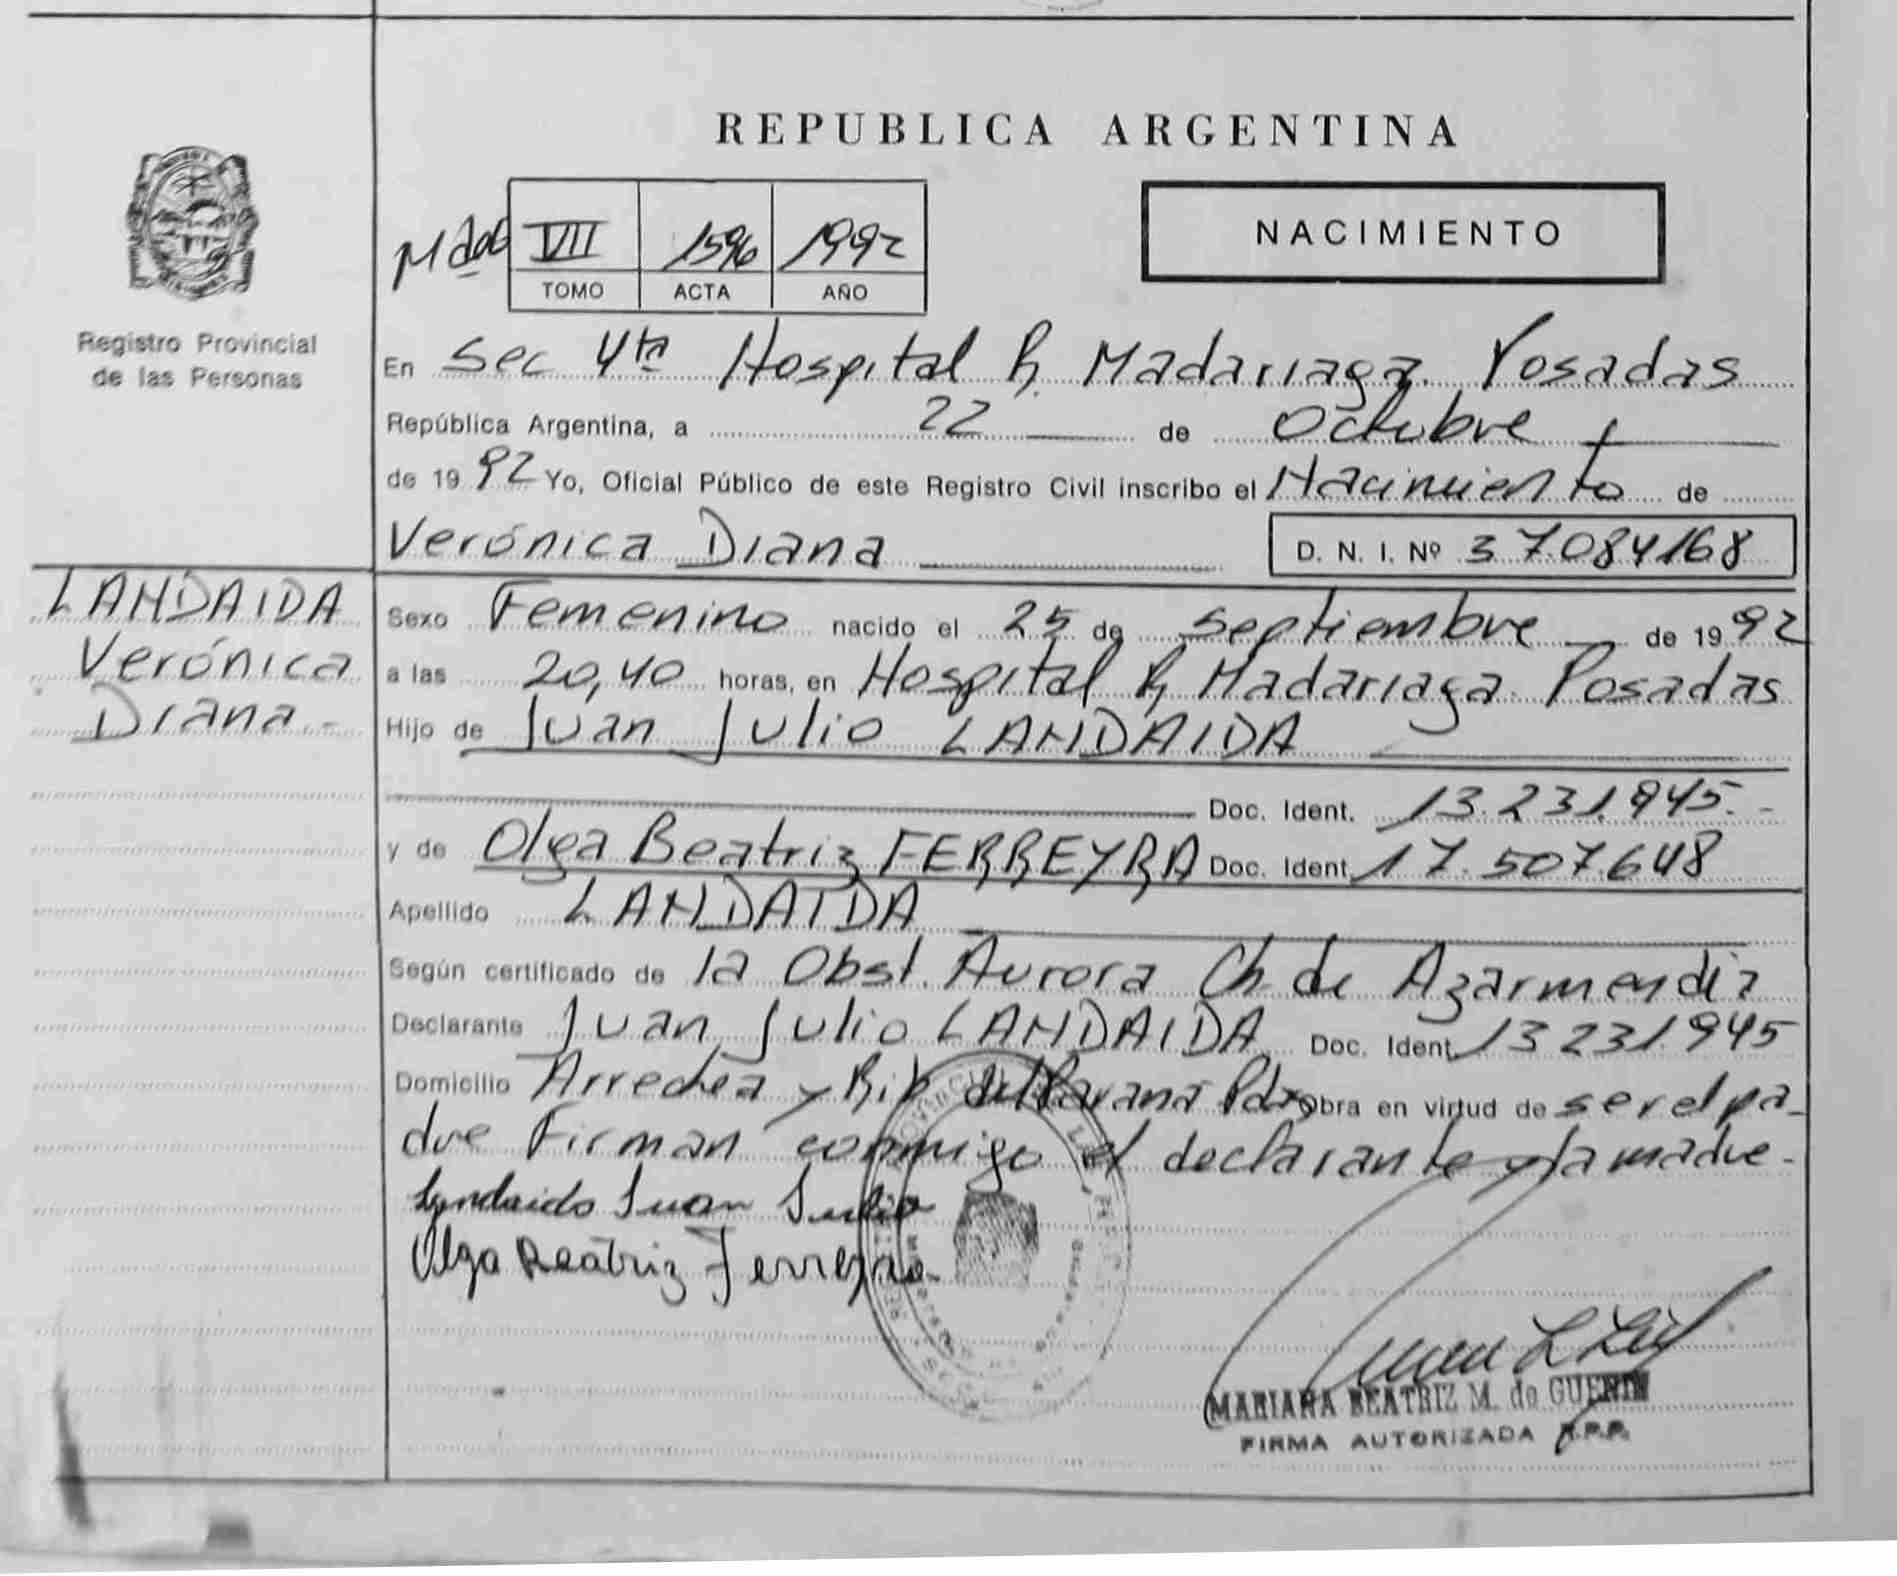 REPUBLICA ARGENTINA
NACIMIENTO
VII 1596 1992
TOMO ACTA AÑO
Registro Provincial
de las Personas
En Sec 4ta Hospital R Madariaga Posadas
República Argentina, a 22 de Octubre
de 1992 Yo, Oficial Público de este Registro Civil inscribo el Nacimiento de
Verónica Diana D. N. I. Nº 37.084168
LANDAIDA
Verónica
Diana.-
Sexo Femenino nacido el 25 de Septiembre de 1992
a las 20,40 horas, en Hospital R Madariaga Posadas
Hijo de Juan Julio LANDAIDA
Doc. Ident. 13.231.945.-
y de Olga Beatriz FERREYRA Doc. Ident. 17.507.648
Apellido LANDAIDA
Según certificado de la Obst. Aurora Ch. de Azarmendia
Declarante Juan Julio LANDAIDA Doc. Ident. 13 231.945
Domicilio Arrechea y del Paraná Pdas Obra en virtud de ser el pa-
dre Firman conmigo el declarante y la madre-
Landaida Juan Julio
Olga Beatriz Ferreyra
MARIANA BEATRIZ M. de GUERIN
FIRMA AUTORIZADA R.P.P.